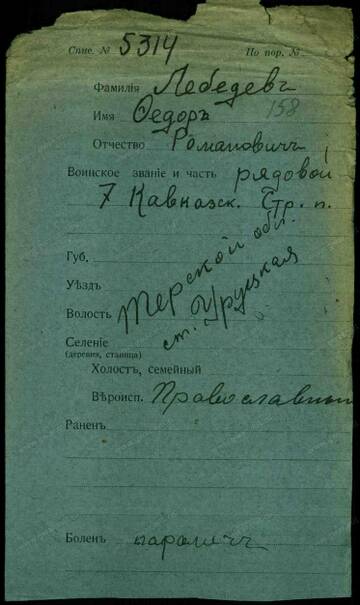 Спис. № 5314 По пор. №
Фамилія Лебедевъ
Имя Ѳедоръ 158
Отчество Романовичъ
Воинское званіе и часть рядовой
7 Кавказск. Стр. п.
Губ.
Уѣздъ Терской обл.
Волость ст. Урухская
Селеніе
(деревня, станица)
Холостъ, семейный
Вѣроисп. Православный
Раненъ
Боленъ параличъ